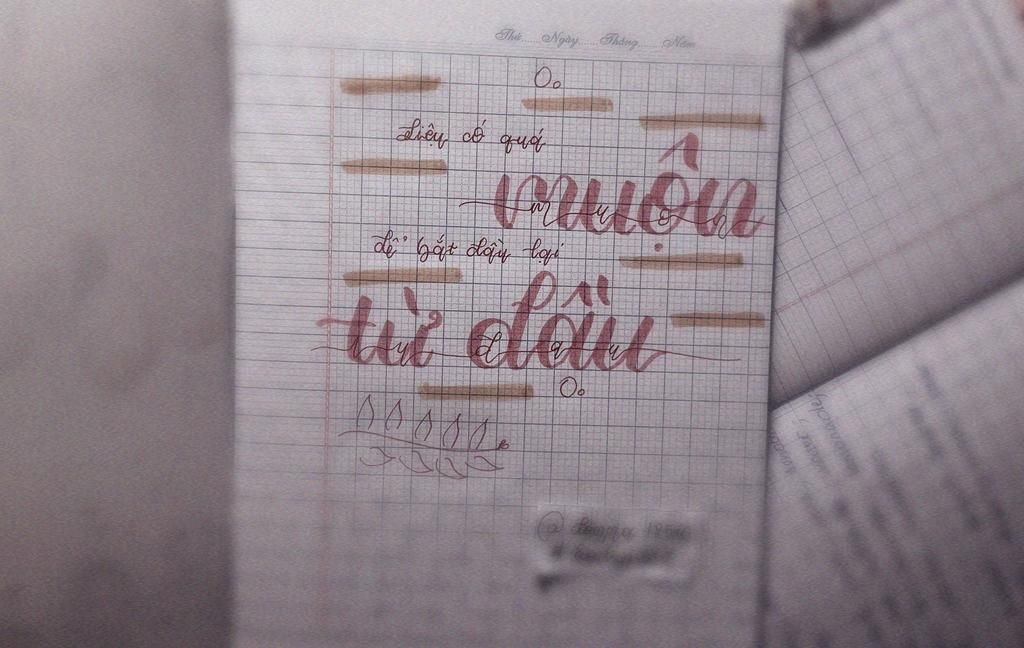 Thứ......Ngày......Tháng......Năm
Liệu có quá
muộn
để bắt đầu lại
từ đầu